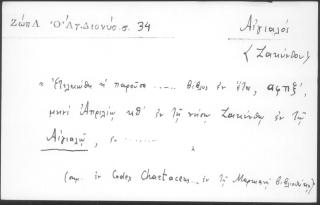 Ζώη Λ Ὁ Ἅγ. Διονύσ. σ. 34
Αἰγιαλός
(Ζακύνθου)
« Ἐτελειώθη ἡ παροῦσα ..... βίβλος ἐν ἔτει, αφπξ',
μηνὶ Ἀπριλίῳ κθ' ἐν τῇ νήσῳ Ζακύνθῳ ἐν τῷ
Αἰγιαλῷ, ἐν ........
ἐν Codex Chartaceus .. ἐν τῇ Μαρκιανῇ Βιβλιοθήκῃ)